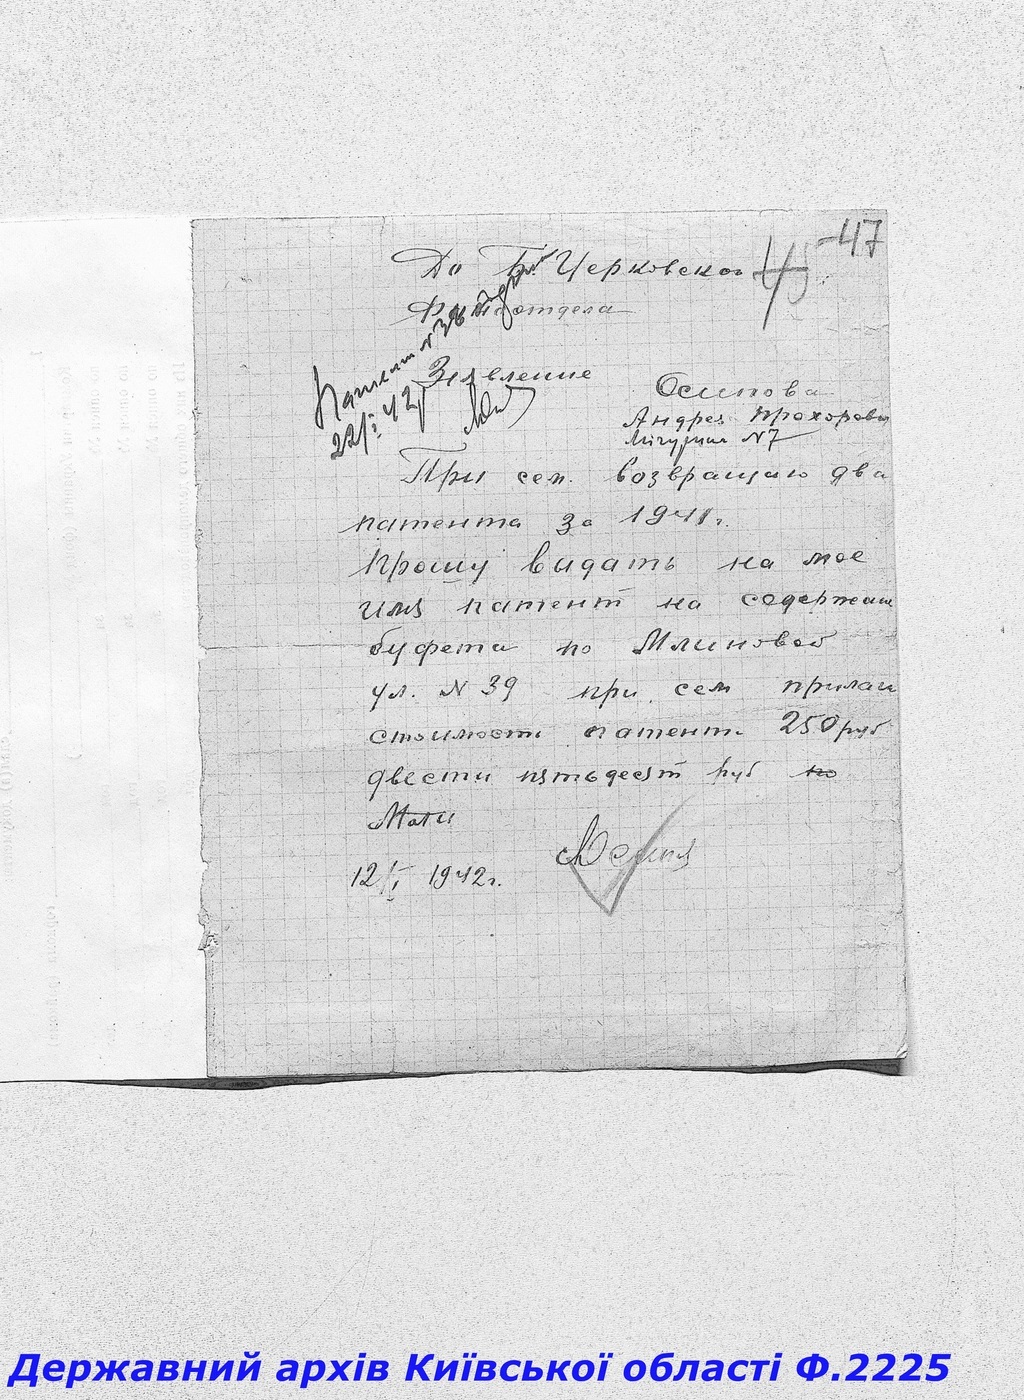 -47
45
До Б. Церковского
Финотдела
Патент № 38 выдан
22/I 42 г
Заявление
Осипова
Андрея Прохорови
Мічурина №7
При сем возвращаю два
патента за 1941 г.
Прошу выдать на мое
имя патент на содержан
буфета по Млиновой
ул. № 39 при сем прилаг
стоимости патент. 250 руб
двести пятьдесят руб по
12/I 1942 г.
Державний архів Київської області Ф.2225